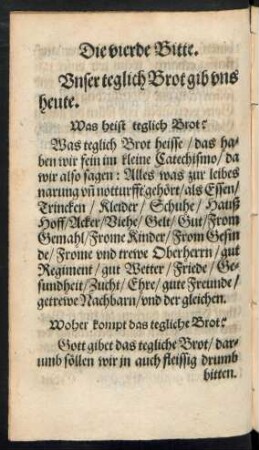 Die vierde Bitte.
Vnser teglich Brot gib vns
heute.
Was heist teglich Brot?
Was teglich Brot heisse / das ha-
ben wir fein im kleine Catechismo / da
wir also sagen: Alles was zur leibes
narung vn̄ notturfft gehört / als Essen /
Trincken / Kleider / Schuhe / Hauß
Hoff / Acker / Viehe / Gelt / Gut / From
Gemahl / Frome Kinder / From Gesin
de / Frome vnd trewe Oberherrn / gut
Regiment / gut Wetter / Friede / Ge-
sundheit / Zucht / Ehre / gute Freunde /
getrewe Nachbarn / vnd der gleichen.
Woher kompt das tegliche Brot?
Gott gibet das tegliche Brot / dar-
umb söllen wir in auch fleissig drumb
bitten.